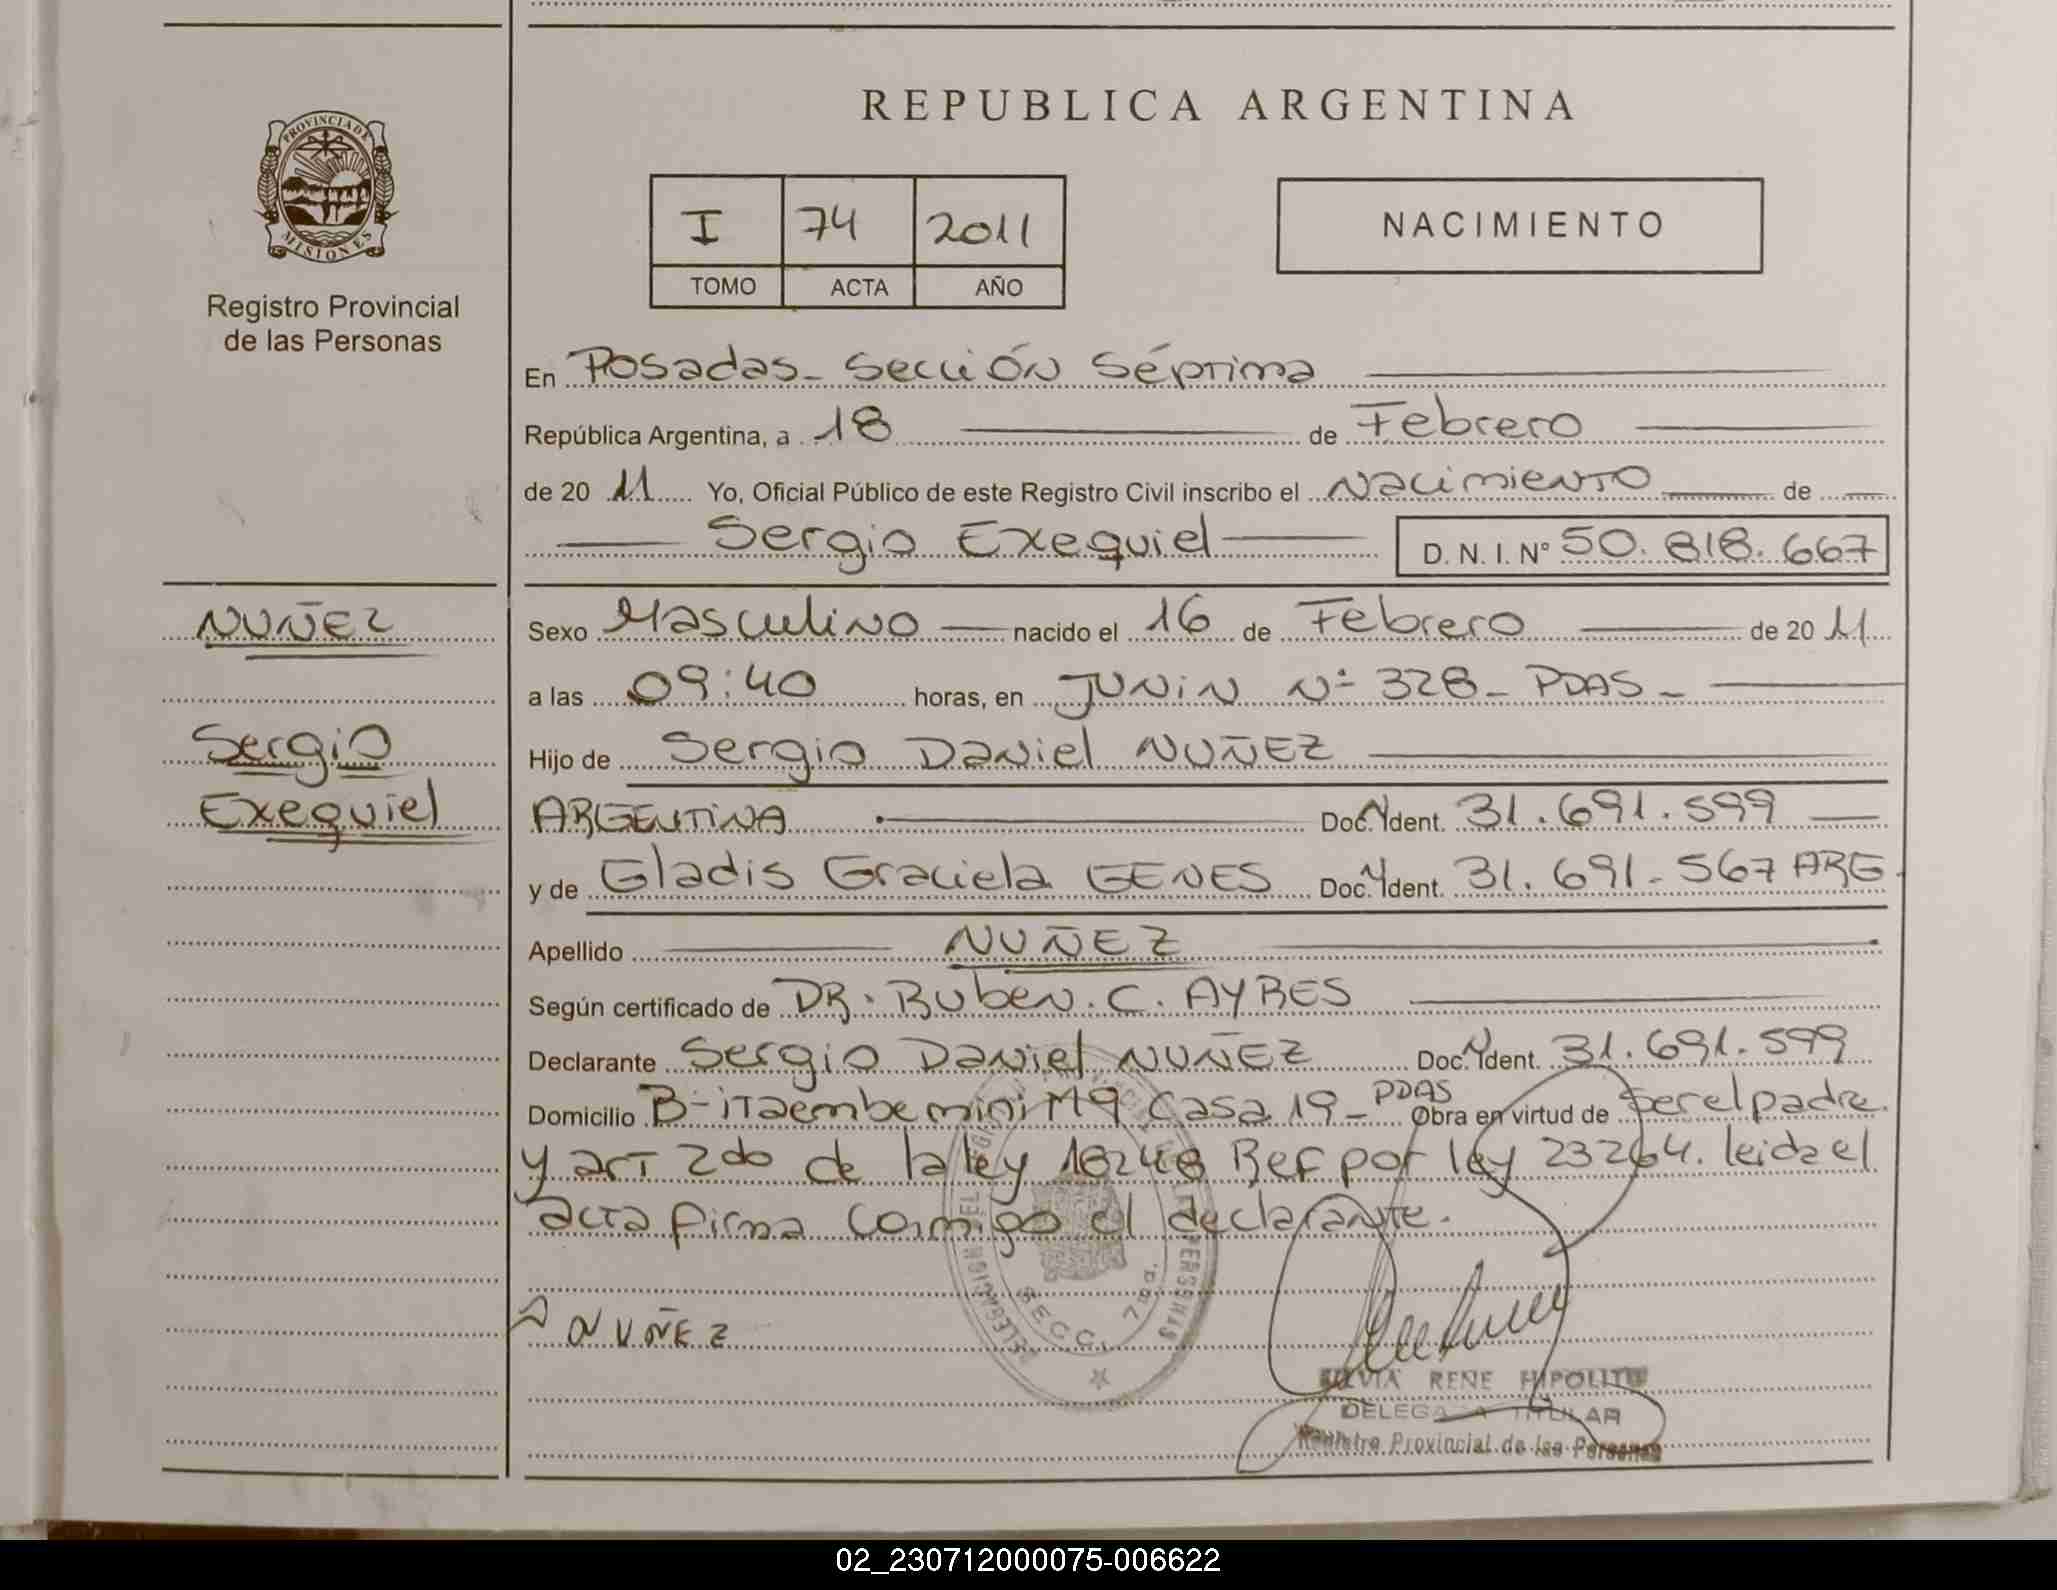 REPUBLICA ARGENTINA
PROVINCIA DE
MISIONES
Registro Provincial
de las Personas
I 74 2011
TOMO ACTA AÑO
NACIMIENTO
En Posadas - Sección Séptima
República Argentina, a 18 de Febrero
de 20 11 Yo, Oficial Público de este Registro Civil inscribo el Nacimiento de
Sergio Exequiel D. N. I. Nº 50.818.667
NUÑEZ
Sergio
Exequiel
Sexo Masculino nacido el 16 de Febrero de 20 11
a las 09:40 horas, en JUNiN Nº 328 - PDAS -
Hijo de Sergio Daniel NUÑEZ
ARGENTINA Doc. Ydent. 31.691.599
y de Gladis Graciela GENES Doc. Ydent. 31.691.567 ARG.
Apellido NUÑEZ
Según certificado de DR. Ruben. C. AYRES
Declarante Sergio Daniel NUÑEZ Doc. Ydent. 31.691.599
Domicilio B-iTaembe mini M9 Casa 19 - PDAS Obra en virtud de Ser el padre.
y art 2do de la ley 18248 Ref por ley 23264. leida el
acta firma conmigo el declarante.
NUÑEZ
SECC. 7ma.
SILVIA RENE HIPOLITO
DELEGADA TITULAR
Registro Provincial de las Personas
02_230712000075-006622